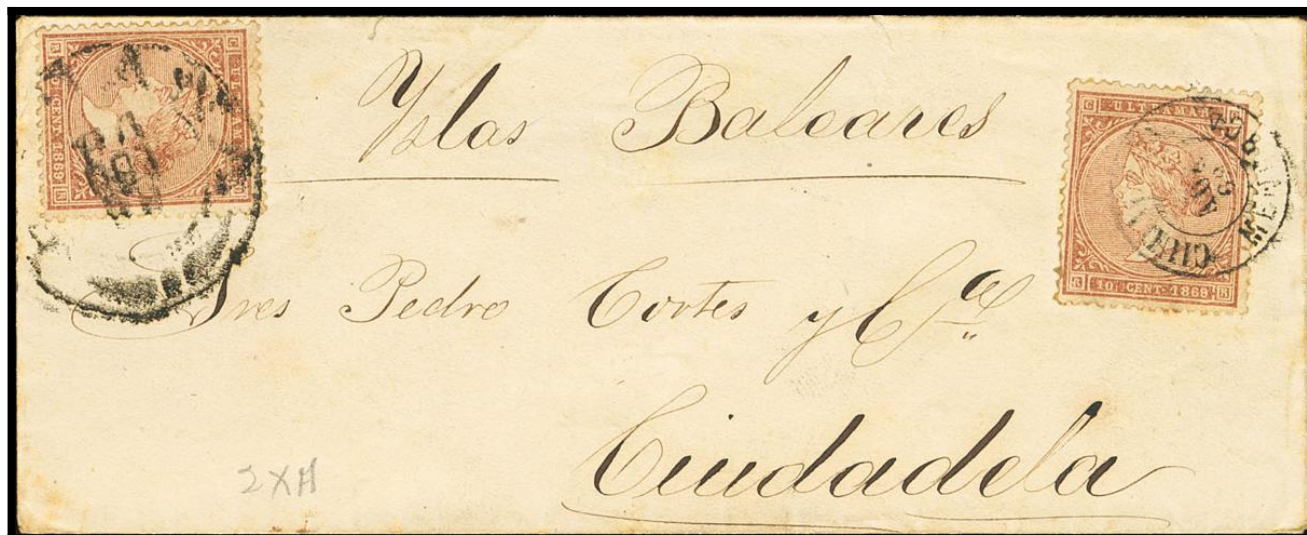 Yslas Baleares
Sres Pedro Cortes y Cª
Ciudadela
C ULTRAMAR
10 CENT. 1868
CENT. 1869